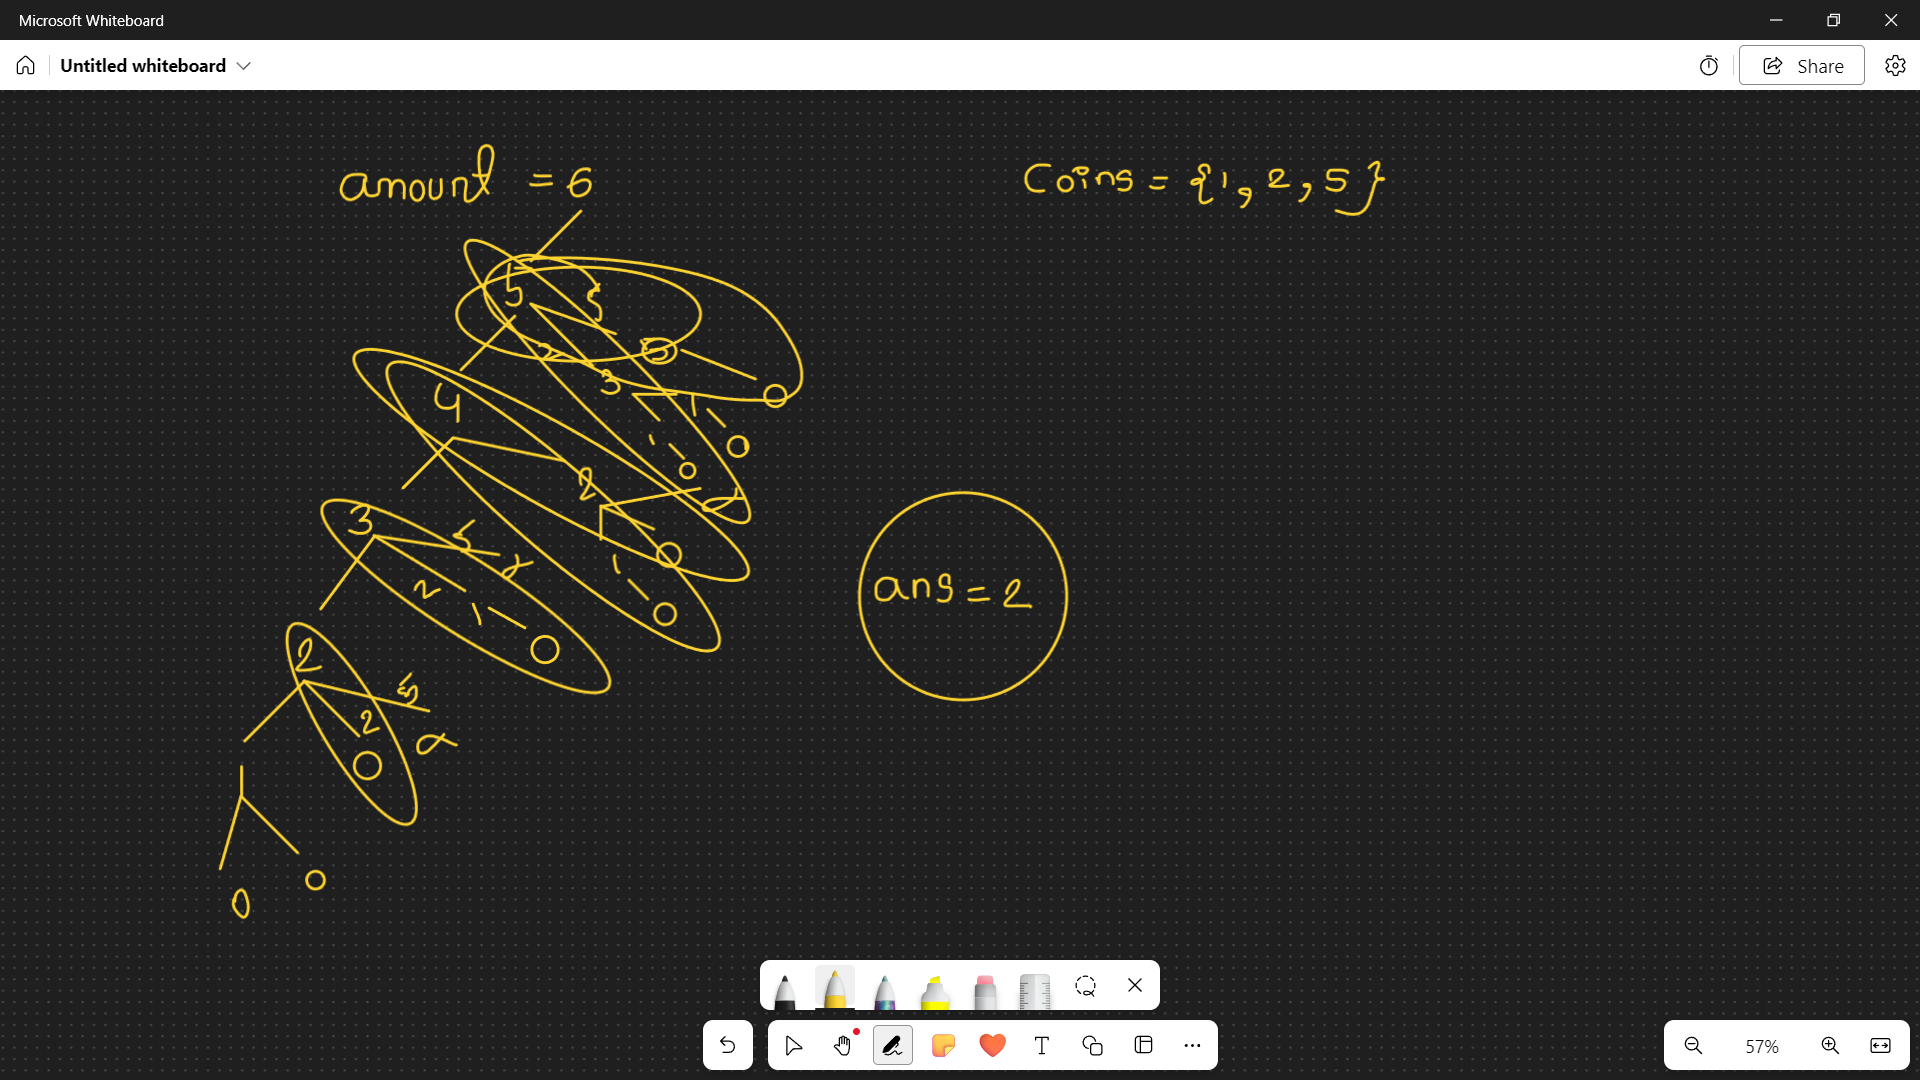 Microsoft Whiteboard
Untitled whiteboard
Share
amount = 6
Coins = {1, 2, 5}
5 5
2 5
3
4 1 0
0
1 0
2
3 5
0
2 1
1 0
ans = 2
0
2 5
2
0
0
0
57%